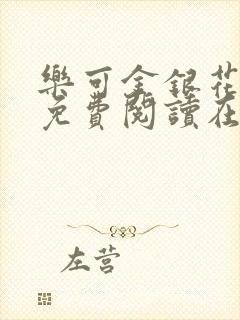 樂可金銀花
免費閱讀在
左营